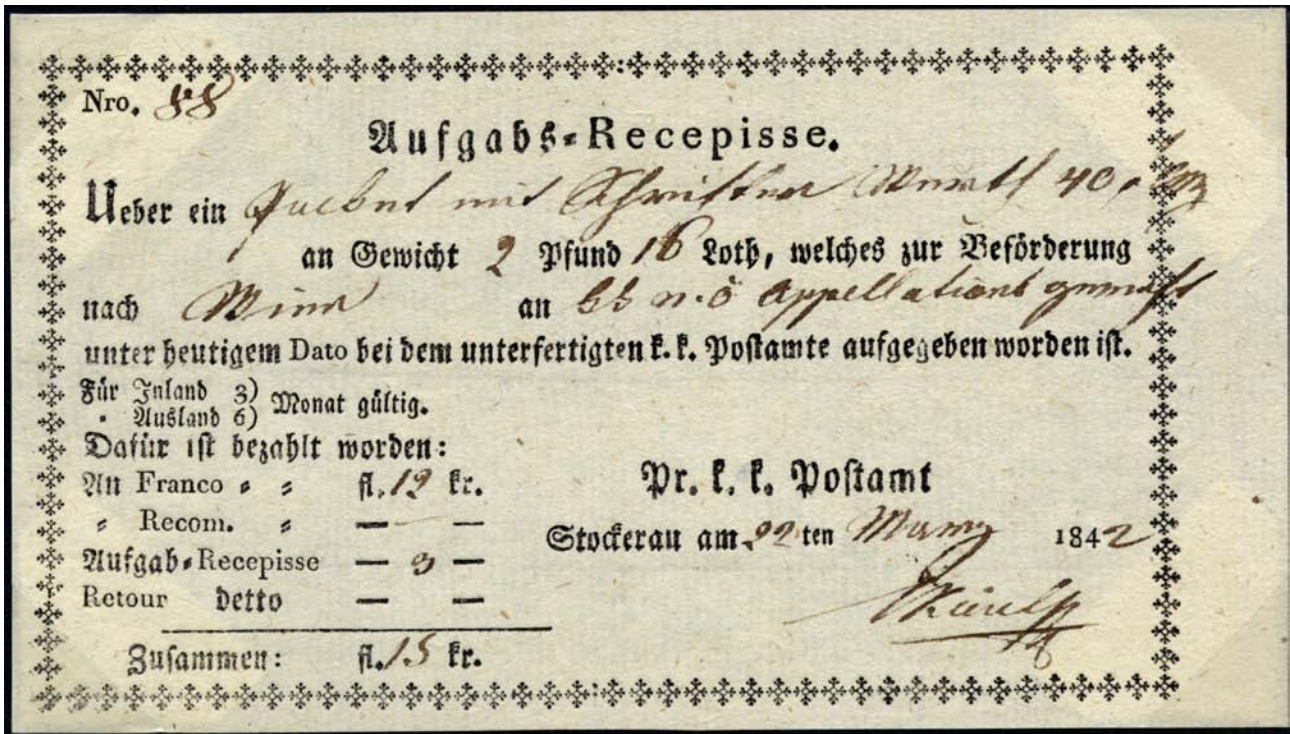 Nro. 88
Aufgabs-Recepisse.
Ueber ein Packet mit Schriften Werth 40,
an Gewicht 2 Pfund 16 Loth, welches zur Beförderung
nach Wien an kk n. ö Appellations gericht
unter heutigem Dato bei dem unterfertigten k. k. Postamte aufgegeben worden ist.
Für Inland 3) Monat gültig.
" Ausland 6)
Dafür ist bezahlt worden:
An Franco " " fl. 12 kr.
" Recom. " — — —
Aufgab-Recepisse — 3 —
Retour detto — —
Zusammen: fl. 15 kr.
Pr. k. k. Postamt
Stockerau am 22 ten März 1842